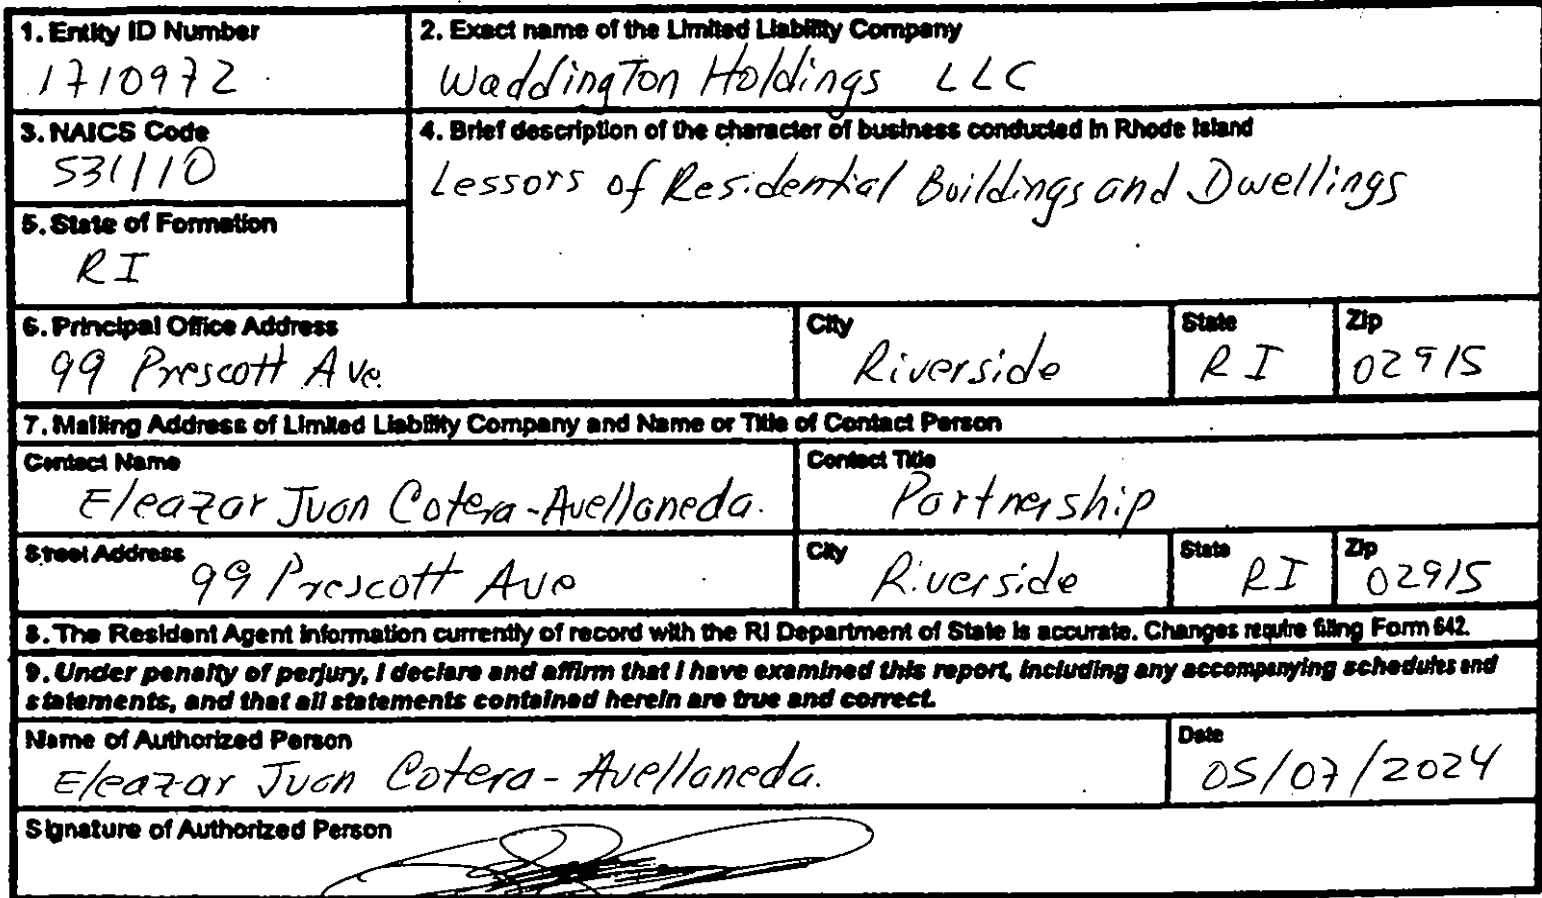 1. Entity ID Number
1710972
2. Exact name of the Limited Liability Company
Waddington Holdings LLC
3. NAICS Code
531110
4. Brief description of the character of business conducted in Rhode Island
Lessors of Residential Buildings and Dwellings
5. State of Formation
RI
6. Principal Office Address
99 Prescott Ave
City
Riverside
State
RI
Zip
02915
7. Mailing Address of Limited Liability Company and Name or Title of Contact Person
Contact Name
Eleazar Juan Cotera-Avellaneda.
Contact Title
Partnership
Street Address
99 Prescott Ave
City
Riverside
State
RI
Zip
02915
8. The Resident Agent information currently of record with the RI Department of State is accurate. Changes require filing Form 642.
9. Under penalty of perjury, I declare and affirm that I have examined this report, including any accompanying schedules and
statements, and that all statements contained herein are true and correct.
Name of Authorized Person
Eleazar Juan Cotera-Avellaneda.
Date
05/07/2024
Signature of Authorized Person